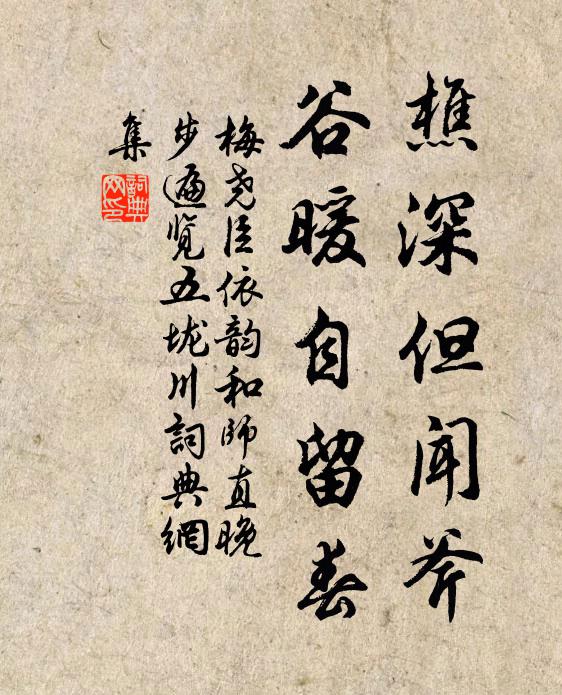 樵深但闻斧
谷暖自留春
梅尧臣依韵和师直晚
步遍览五垅川詞典網
集
詞典
网印